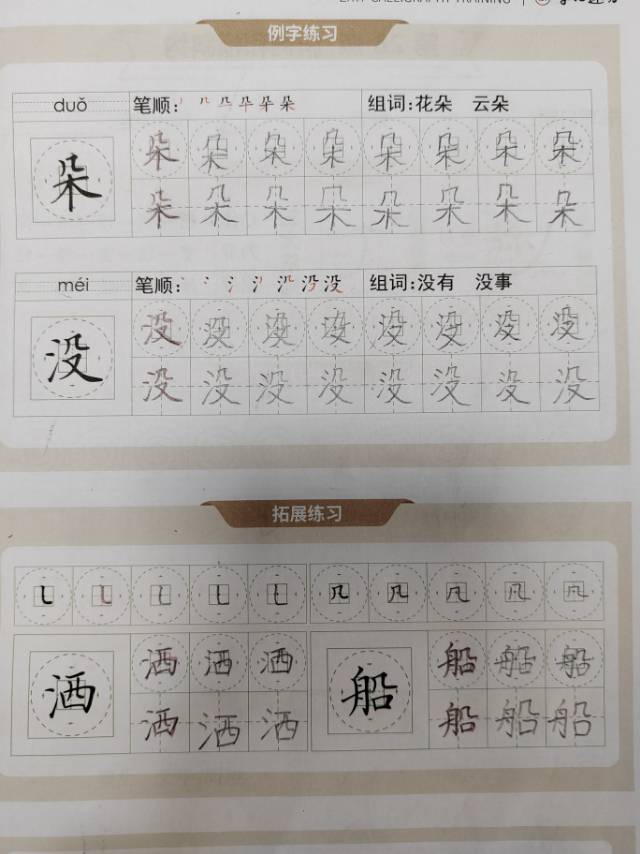 例字练习
duǒ 笔顺: 组词:花朵 云朵
朵 朵 朵 朵 朵 朵 朵 朵 朵
朵 朵 朵 朵 朵 朵 朵 朵
méi 笔顺: 没 组词:没有 没事
没 没 没 没 没 没 没 没 没
没 没 没 没 没 没 没 没
拓展练习
洒 洒 洒 洒 船 船 船 船
洒 洒 洒 船 船 船